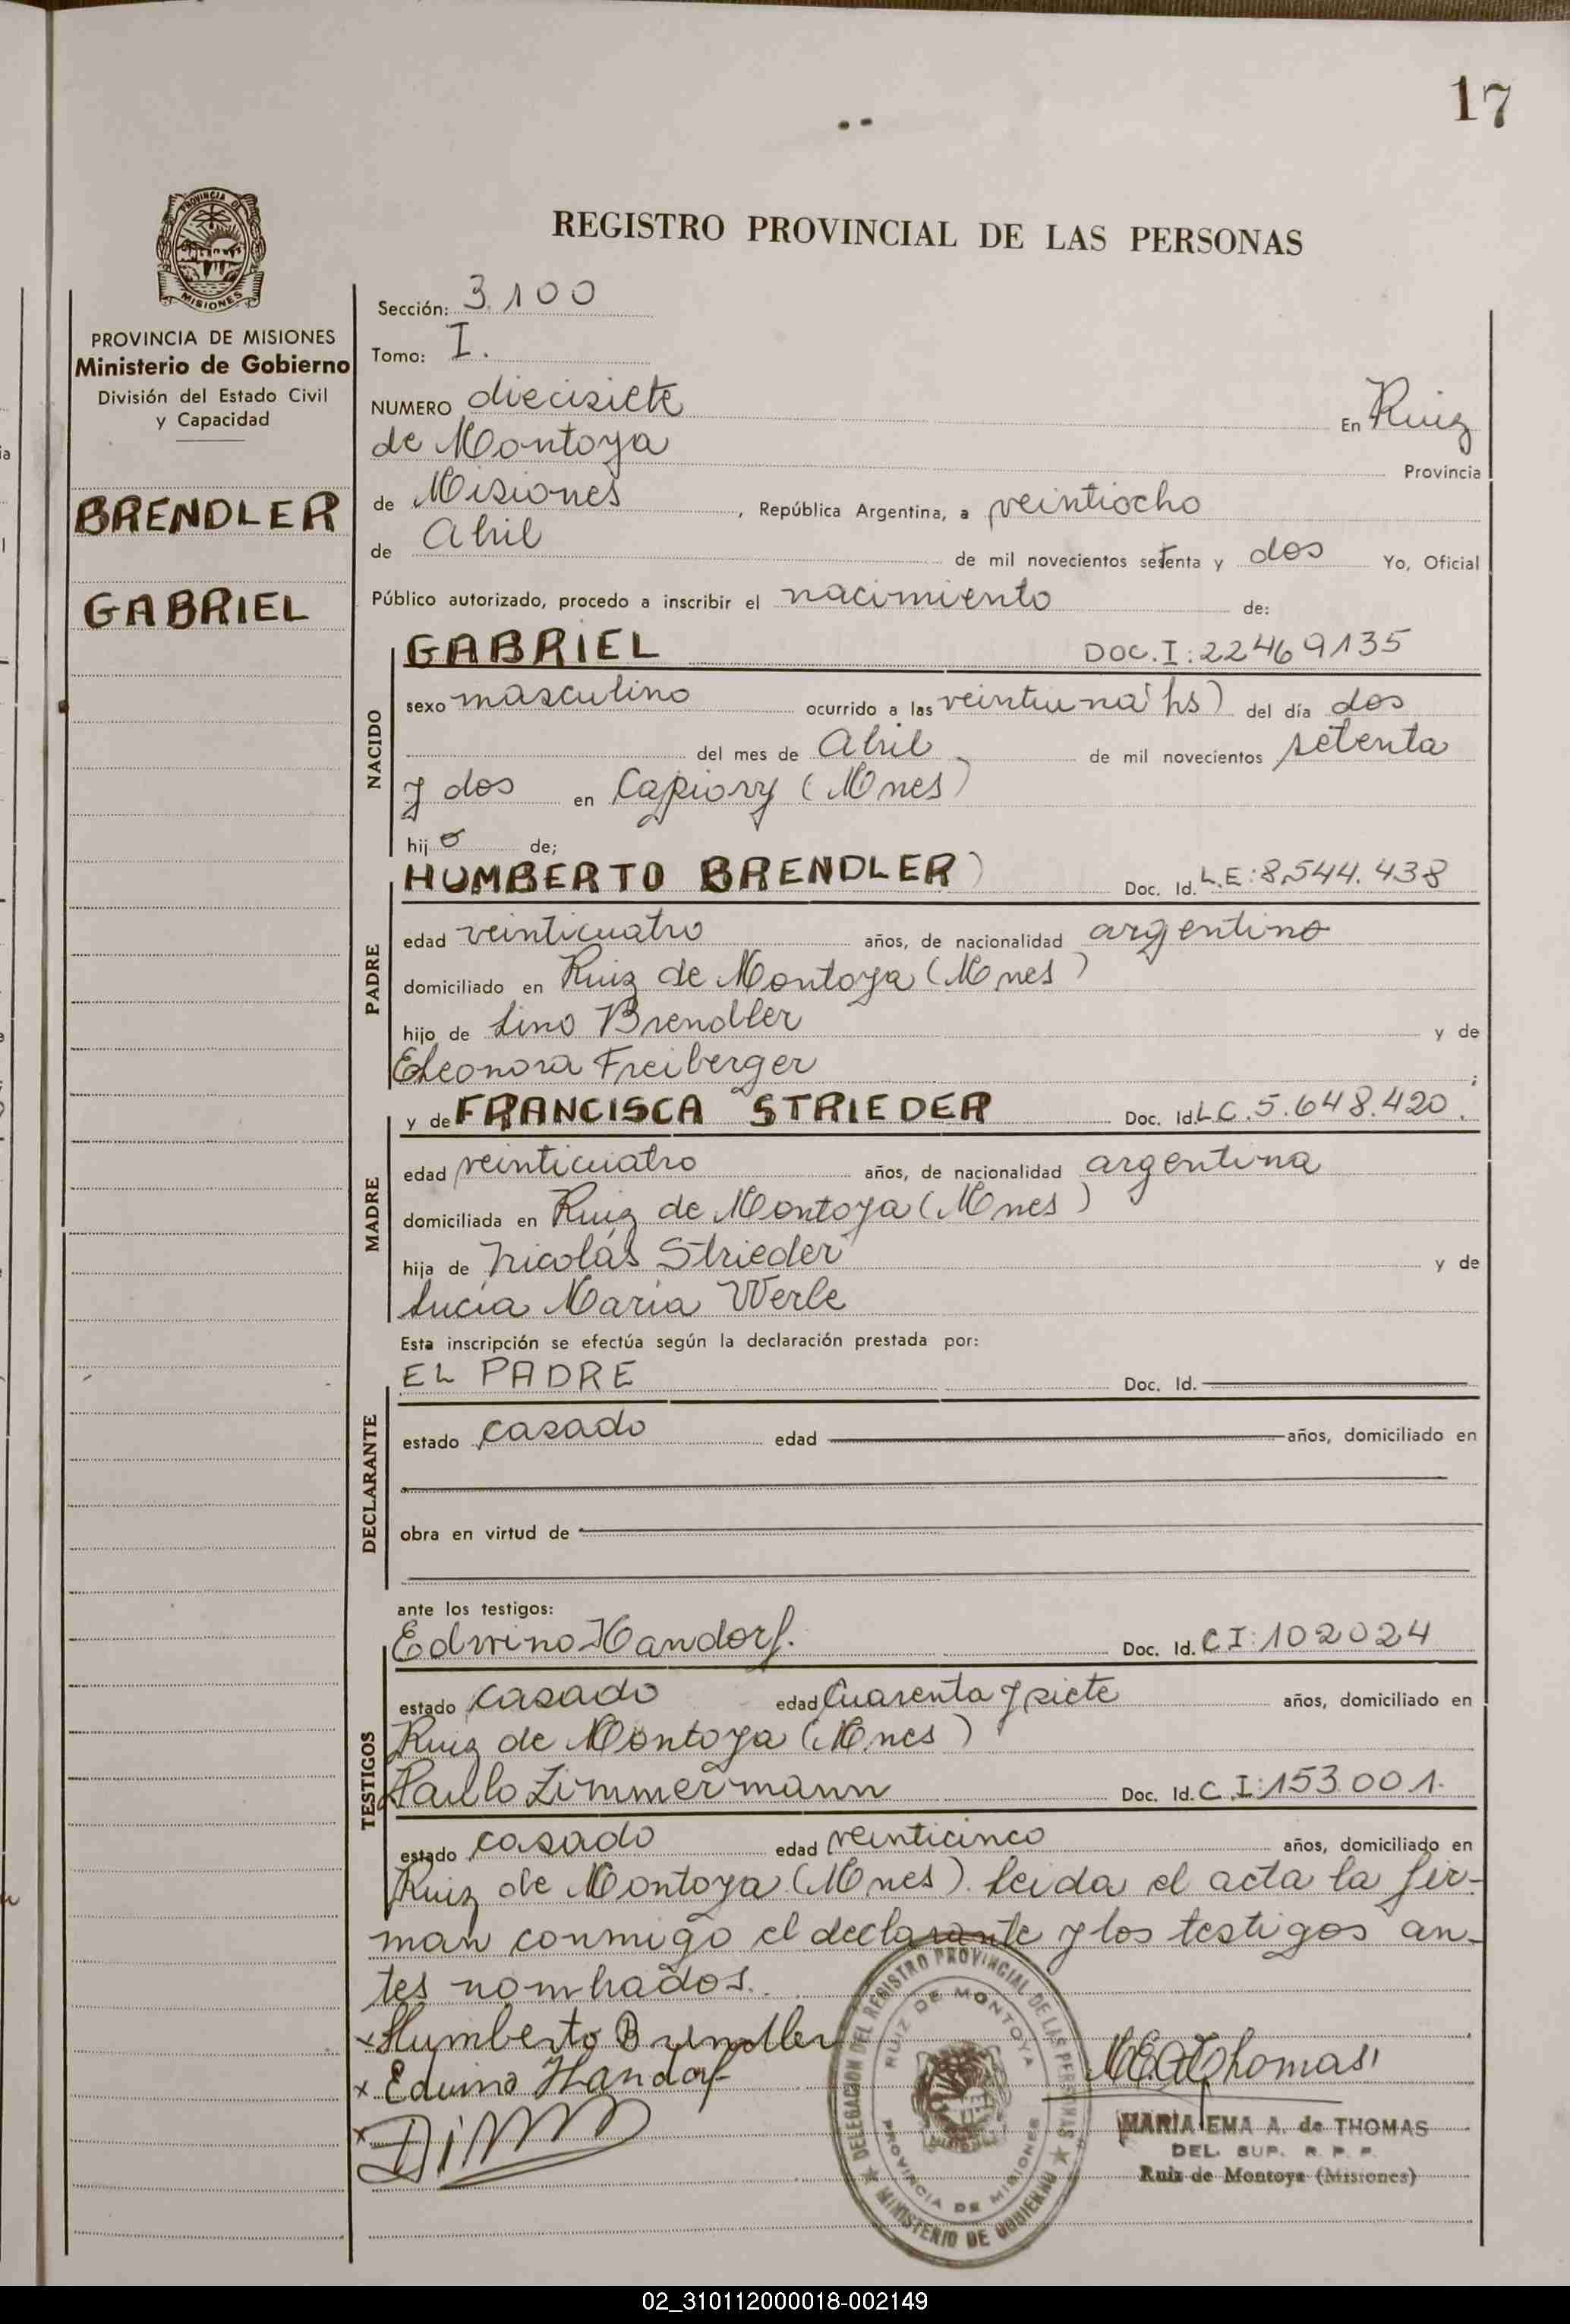 17
PROVINCIA DE
MISIONES
REGISTRO PROVINCIAL DE LAS PERSONAS
PROVINCIA DE MISIONES
Ministerio de Gobierno
División del Estado Civil
y Capacidad
BRENDLER
GABRIEL
Sección: 3.100
Tomo: I.
NUMERO diecisiete En Ruiz
de Montoya Provincia
de Misiones, República Argentina, a veintiocho
de Abril de mil novecientos setenta y dos Yo, Oficial
Público autorizado, procedo a inscribir el nacimiento de:
NACIDO
GABRIEL DOC.I:22469135
sexo masculino ocurrido a las veintiuna hs) del día dos
del mes de Abril de mil novecientos setenta
y dos en Capiovy (Mnes)
hijo de;
PADRE
HUMBERTO BRENDLER) Doc. Id. L.E:8.544.438
edad veinticuatro años, de nacionalidad argentino
domiciliado en Ruiz de Montoya (Mnes)
hijo de Lino Brendler y de
Eleonora Freiberger ;
MADRE
y de FRANCISCA STRIEDER Doc. Id. L.C.5.648.420.
edad veinticuatro años, de nacionalidad argentina
domiciliada en Ruiz de Montoya (Mnes)
hija de Nicolás Strieder y de
Lucía María Werle
Esta inscripción se efectúa según la declaración prestada por:
DECLARANTE
EL PADRE Doc. Id.
estado casado edad años, domiciliado en
obra en virtud de
ante los testigos:
TESTIGOS
Edwino Handorf. Doc. Id. C I:102024
estado casado edad Cuarenta y siete años, domiciliado en
Ruiz de Montoya (Mnes)
Paulo Zimmermann Doc. Id. C.I:153.001.
estado casado edad veinticinco años, domiciliado en
Ruiz de Montoya (Mnes). Leida el acta la fir-
man conmigo el declarante y los testigos an-
tes nombrados.
x Humberto Brendler
x Edwino Handorf
x
DELEGACION DEL REGISTRO PROVINCIAL DE LAS PERSONAS
RUIZ DE MONTOYA
PROVINCIA DE MISIONES
MINISTERIO DE GOBIERNO
MARIA EMA A. de THOMAS
DEL. SUP. R. P. P.
Ruiz de Montoya (Misiones)
02_310112000018-002149